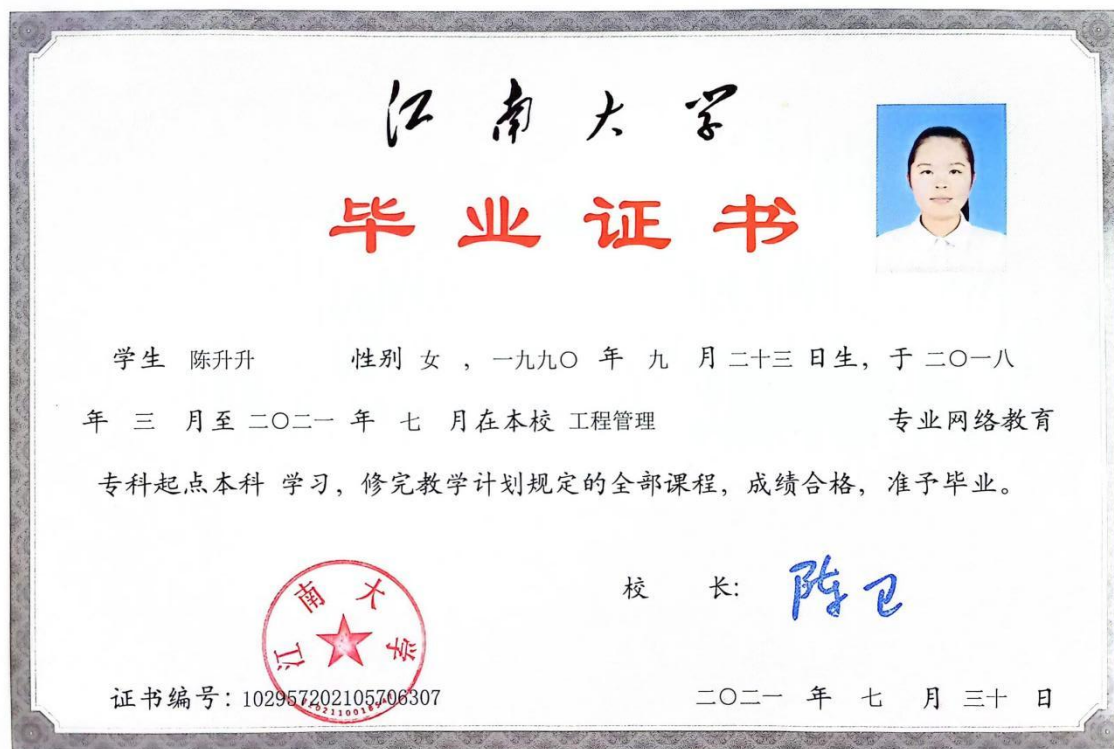 江南大学
毕业证书
学生 陈升升 性别 女 ，一九九〇 年 九 月 二十三 日生，于 二〇一八
年 三 月至 二〇二一 年 七 月在本校 工程管理 专业网络教育
专科起点本科 学习，修完教学计划规定的全部课程，成绩合格，准予毕业。
江南大学
校 长：陈卫
证书编号：102957202105706307
二〇二一 年 七 月 三十 日